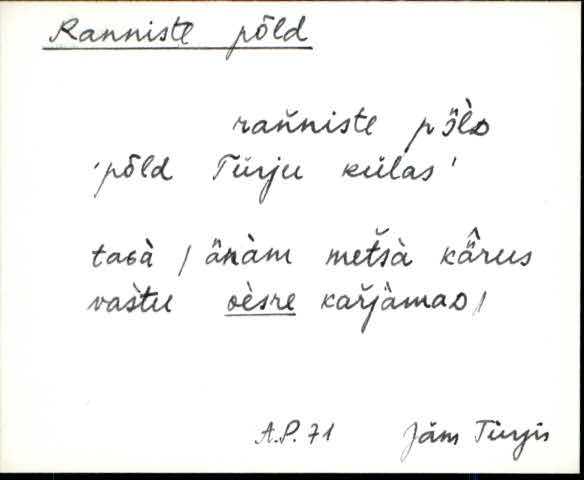 Ranniste põld
rañniste pȫ̀lᴅ
'põld Türju külas'
taʙà / änàm metšà kä̂rus
vaštu oèsre kařjàmaᴅ /
A.P. 71 Jäm Türjis